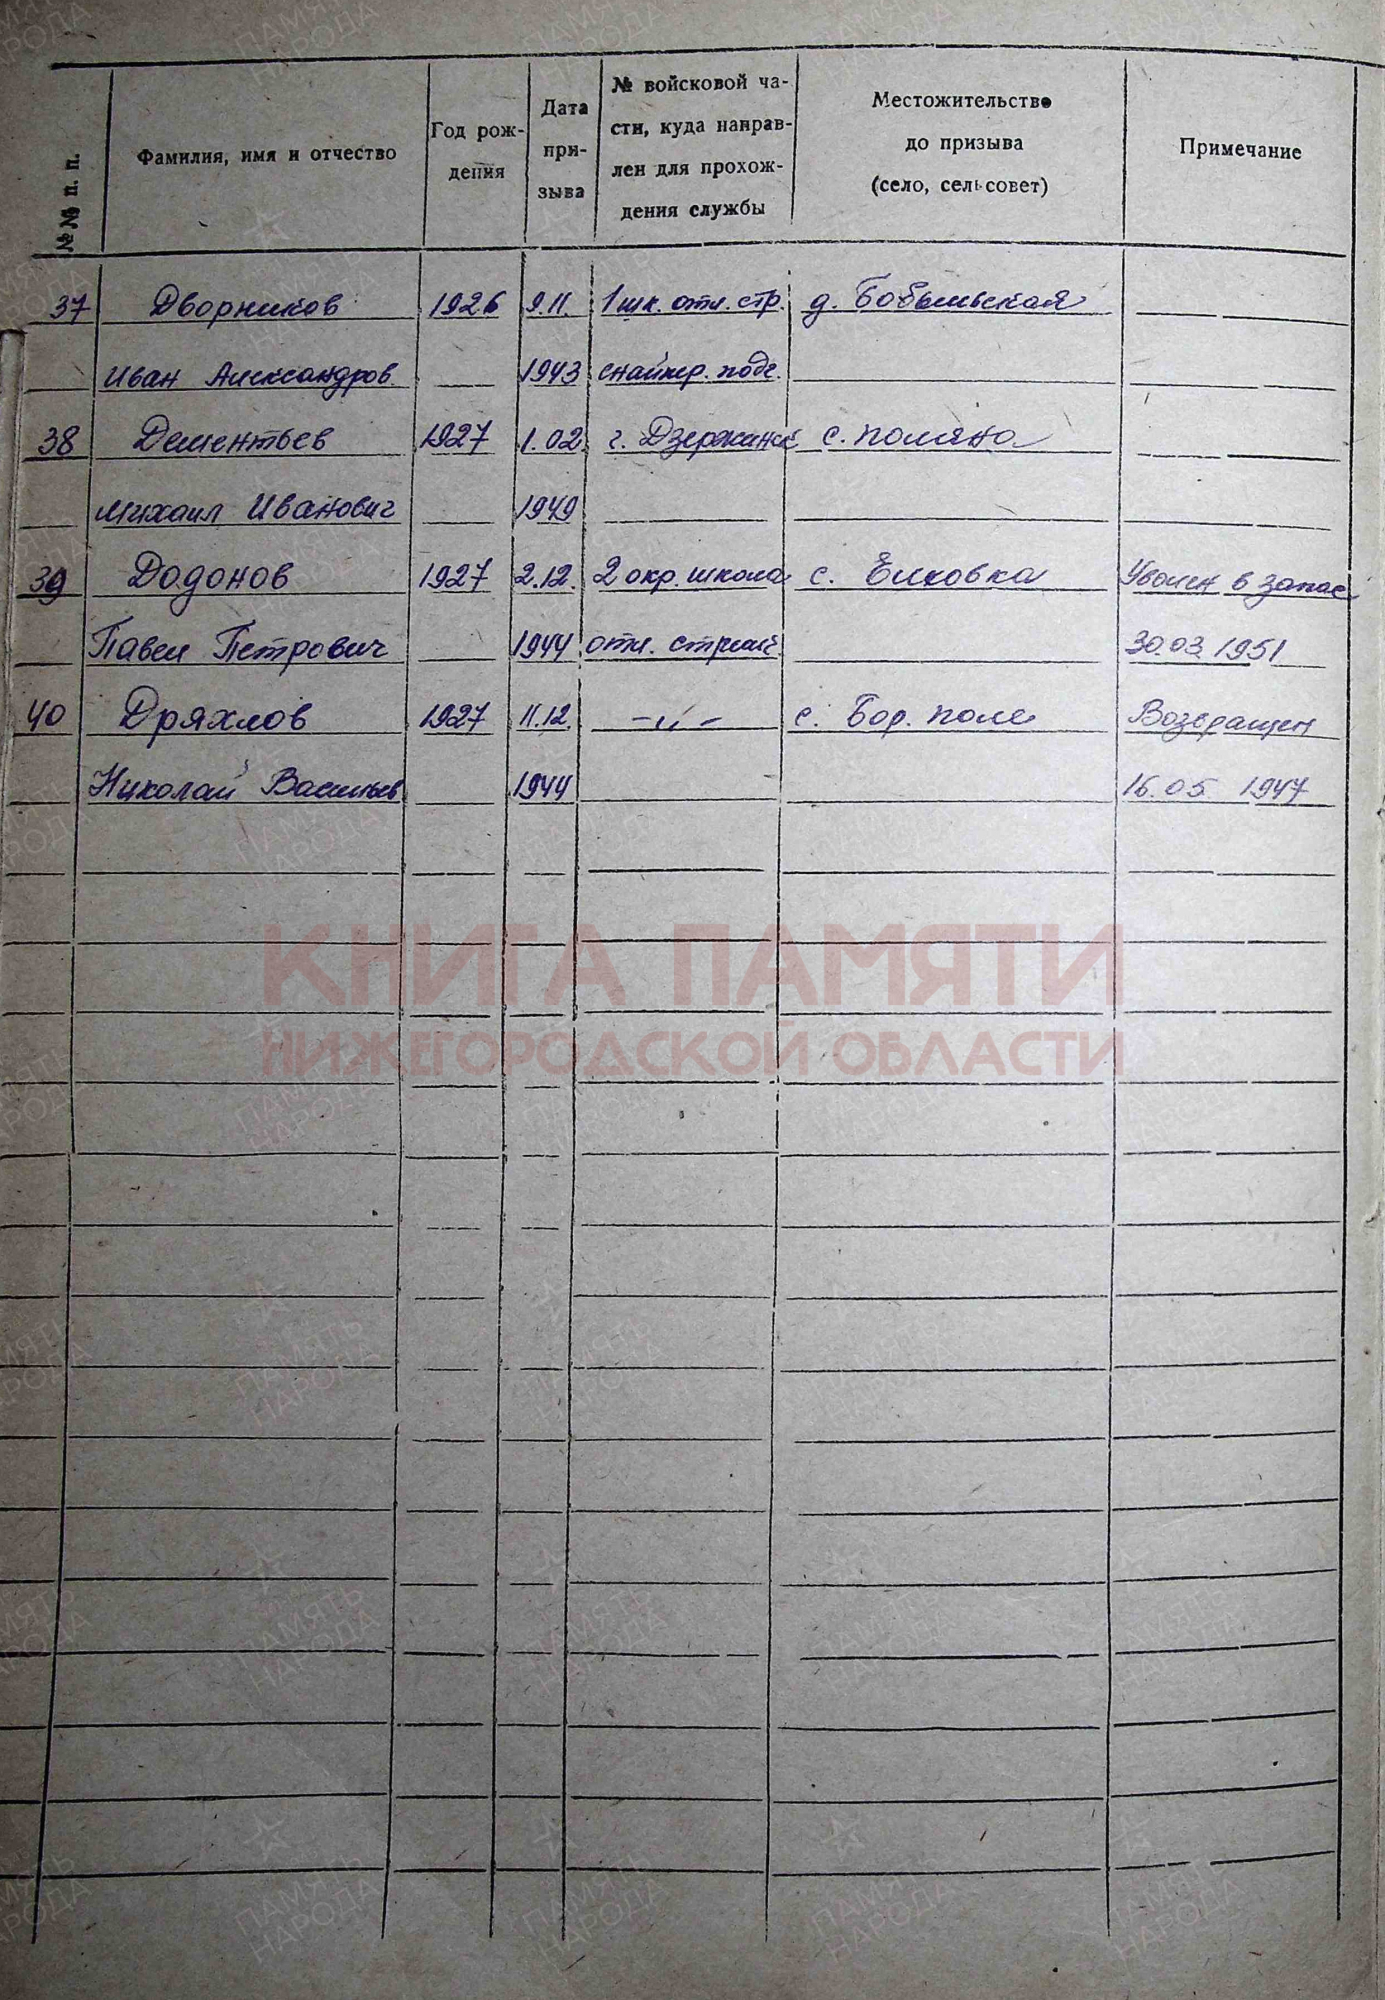 №№ п. п.
Фамилия, имя и отчество
Год рож-
дения
Дата
при-
зыва
№ войсковой ча-
сти, куда направ-
лен для прохож-
дения службы
Местожительство
до призыва
(село, сельсовет)
Примечание
37 Дворников 1926 9.11. 1 шк. отл. стр. д. Бобыльская
Иван Александров. 1943 снайпер. подг.
38 Дементьев 1927 1.02 г. Дзержинск с. Поляна
Михаил Иванович 1949
39 Додонов 1927 2.12. 2 окр. школа с. Елховка Уволен в запас
Павел Петрович 1944 отл. стрелк. 30.03.1951
40 Дряхлов 1927 11.12. –"– с. Бор. поле Возвращен
Николай Васильев 1944 16.05 1947
КНИГА ПАМЯТИ
НИЖЕГОРОДСКОЙ ОБЛАСТИ
ПАМЯТЬ
НАРОДА